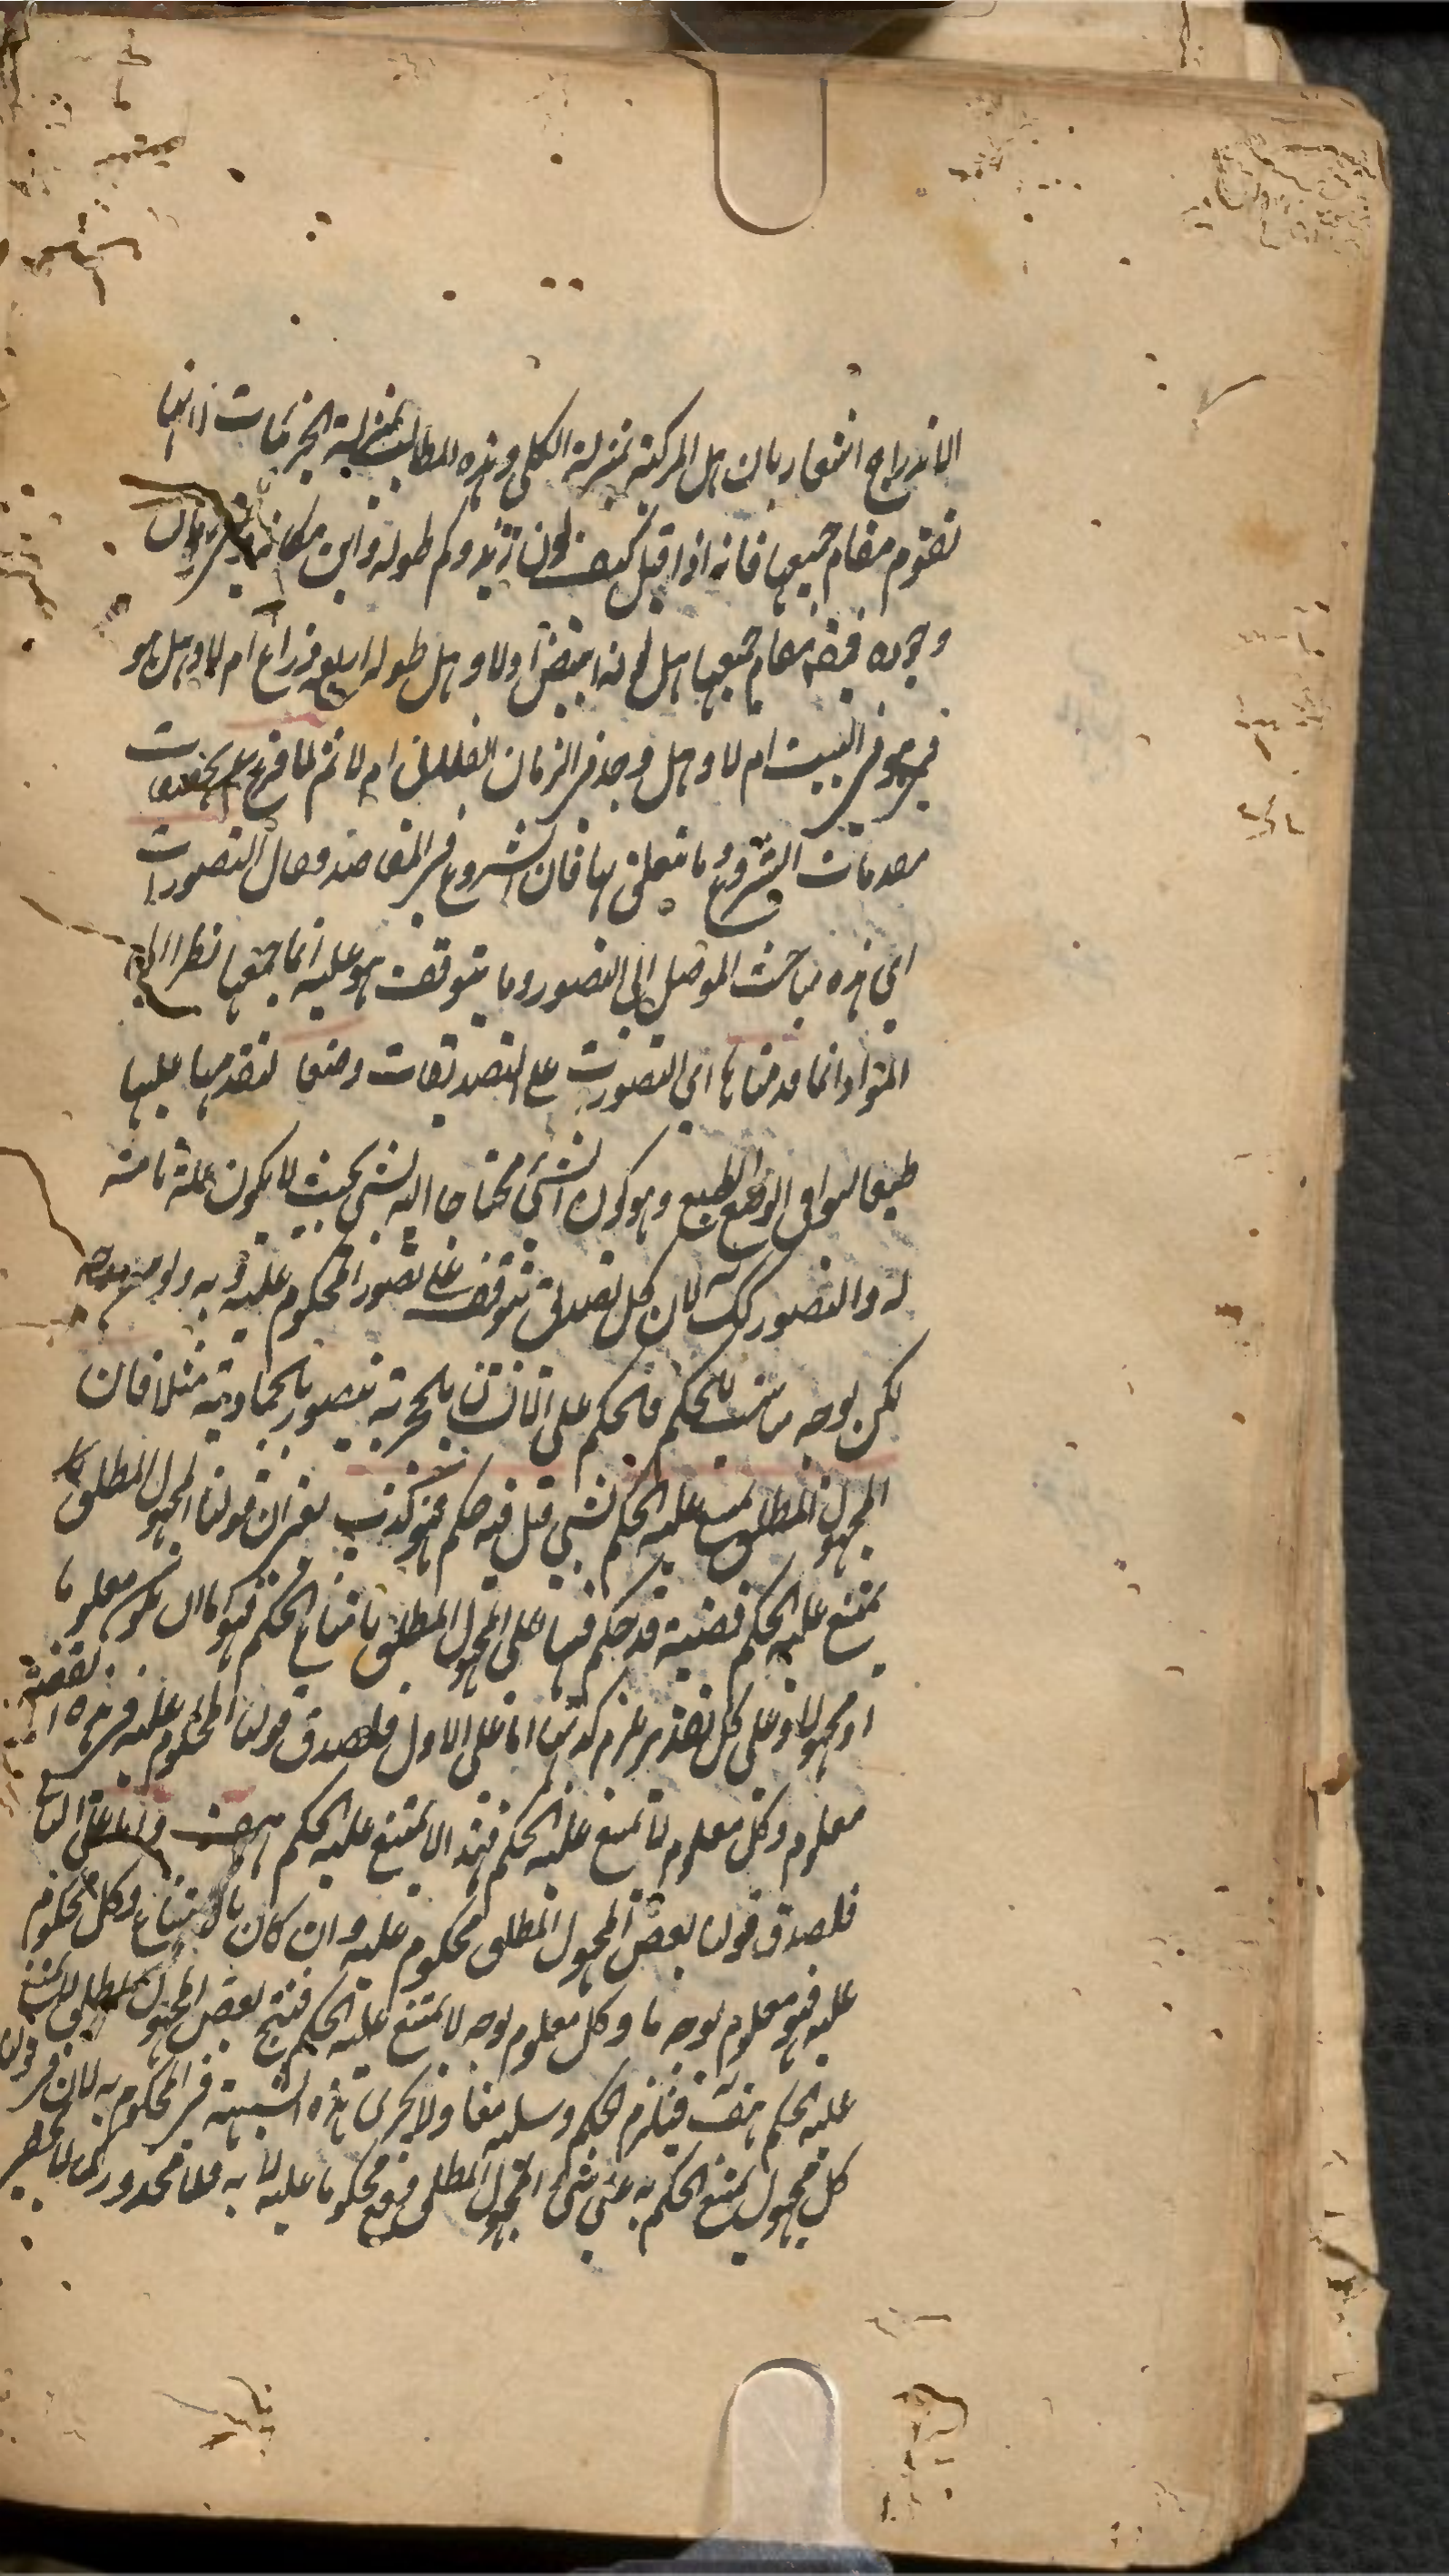 الاندراج اشعار بان هل المركبة بمنزلة الكلى وهذه المطالب بمنزلة الجزئيات لانها
تقوم مقام جميعها فانه اذا قيل كيف لون زيد وكم طوله واين مكانه ومتى زمان
وجوده فيقوم مقام جميعها هل لونه ابيض اولا وهل طوله اربعة ذراع ام لا وهل هو
موجود فى البيت ام لا وهل وجد فى الزمان الفلانى ام لا ثم لما فرغ عن تحقيقات
مقدمات الشروع وما يتعلق بها فان الشروع فى المقاصد وقال التصورات
اى هذه مباحث الموصل الى التصور وما يتوقف هو عليه انما جمعها نظرا الى
المواد انما قدمناها اى التصورات على التصديقات وضعا لتقدمها عليها
طبعا ليوافق الوضع الطبع وهو كون الشئ محتاجا اليه لشئ بحيث لا يكون علة تامة
له والتصور كك لان كل تصديق يتوقف على تصور المحكوم عليه وبه ولو بوجه
لكن بوجه مناسب للحكم فالحكم على الانسان بالحجرية بتصور بالجمادية مثلا فان
المجهول المطلق يمتنع عليه الحكم بشئ قيل فيه حكم فهو كذب يعنى ان قولنا المجهول المطلق
يمتنع عليه الحكم قضية قد حكم فيها على المجهول المطلق بامتناع الحكم فهو اما ان يكون معلوما
او مجهولا وعلى كل تقدير يلزم كذبها اما على الاول فلصدق قولنا المحكوم عليه فى هذه القضية
معلوم وكل معلوم لا يمتنع عليه الحكم فهذا لا يمتنع عليه الحكم هف واما على الثانى
فلصدق قولنا بعض المجهول المطلق محكوم عليه وان كان بالامتناع وكل محكوم
عليه فهو معلوم بوجه ما وكل معلوم بوجه لا يمتنع عليه الحكم فينتج بعض المجهول المطلق لا يمتنع
عليه الحكم هف فيلزم الحكم وسلبه معا ولا يجرى هذه الشبهة فى المحكوم به لان فى قولنا
كل مجهول يمتنع الحكم به على شئ المجهول المطلق وقع محكوما عليه لا به فلا محذور